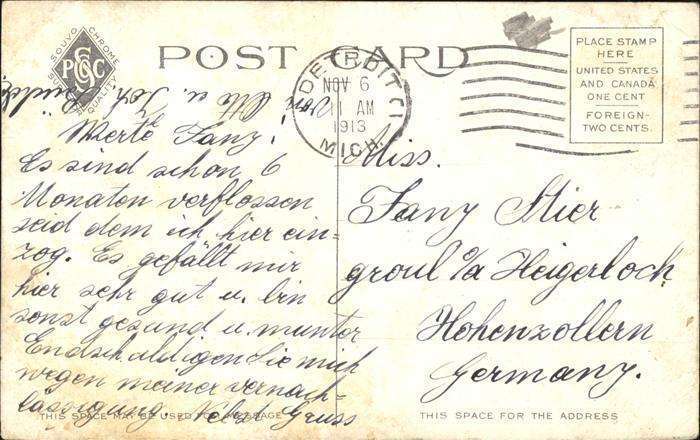 SOUVO CHROME
PCSC
QUALITY
POST CARD
DETROIT
NOV 6
11 AM
1913
MICH.
PLACE STAMP
HERE
UNITED STATES
AND CANADA
ONE CENT
FOREIGN-
TWO CENTS.
Werte Fany!
Es sind schon 6
Monaten verflossen
seid dem ich hier ein-
zog. Es gefällt mir
hier sehr gut u. bin
sonst gesund u. munter
Endschuldigen Sie mich
wegen meiner vernach-
lässigung. Nebst Gruss
von Otto u. Joh.
Miss.
Fany Stier
groul o/a Heigerloch
Hohenzollern
Germany.
THIS SPACE MAY BE USED FOR MESSAGE
THIS SPACE FOR THE ADDRESS